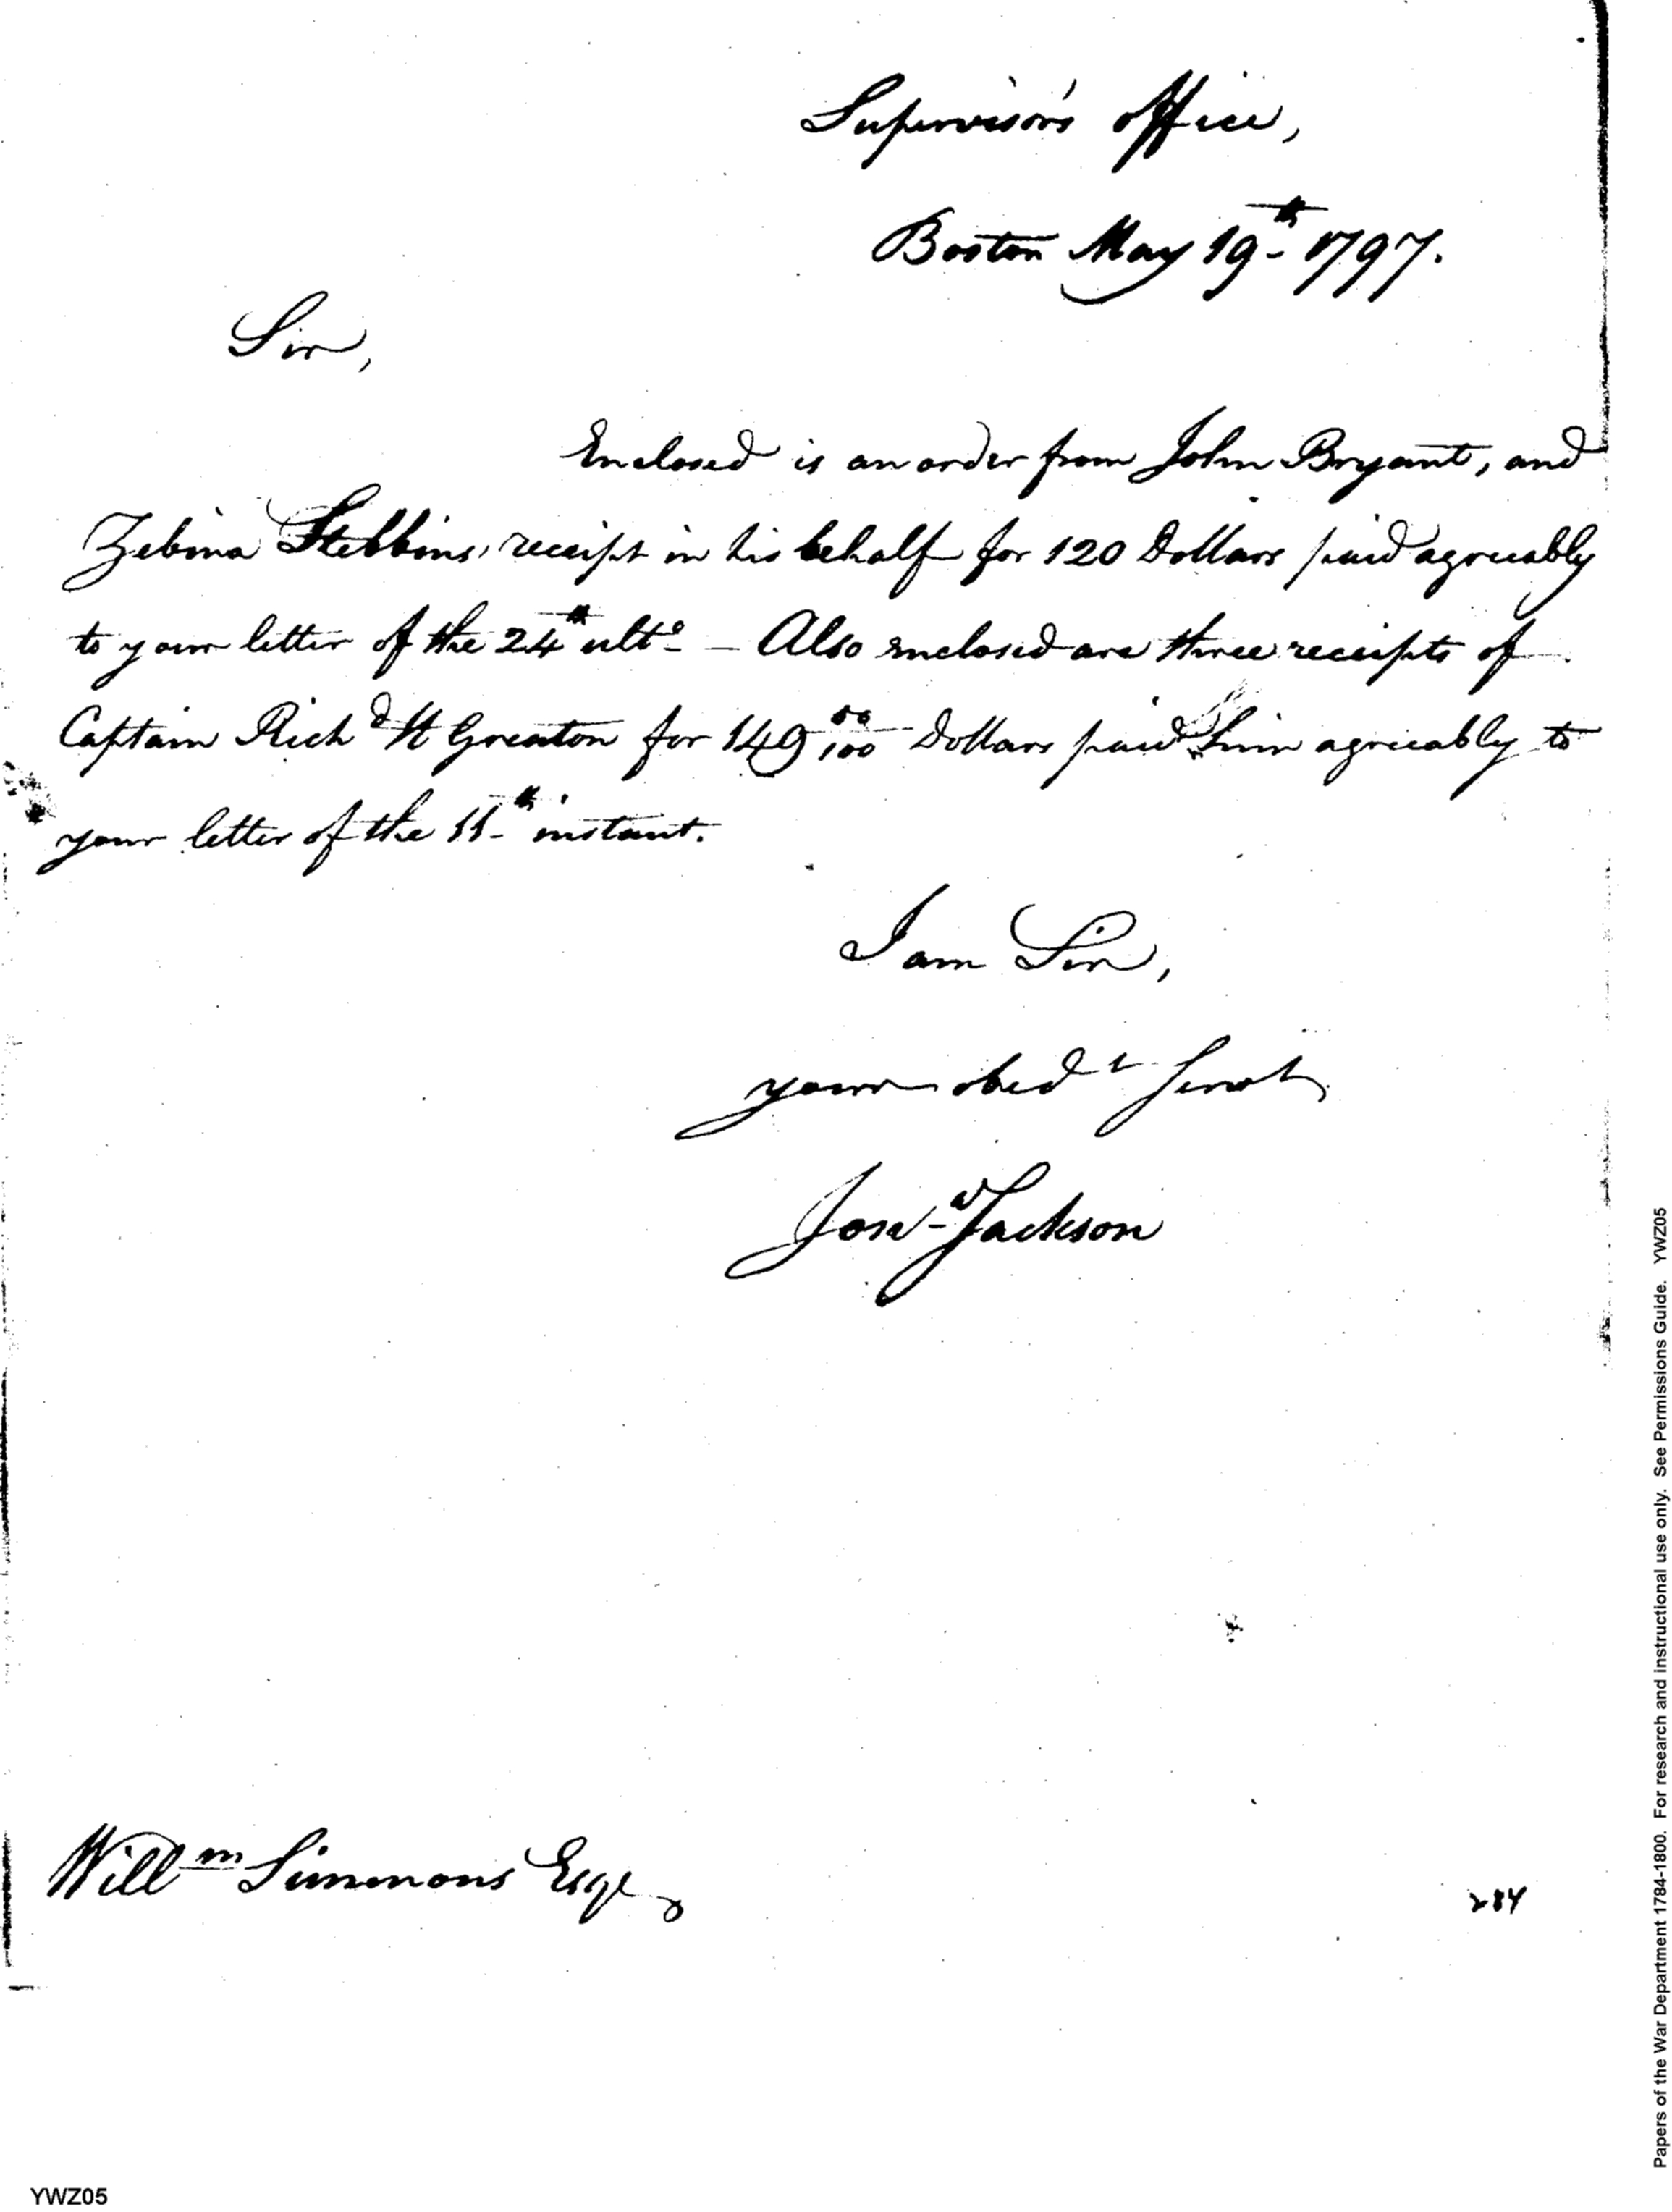 Supervisor's Office,
Boston May 19th 1797.
Sir,
Enclosed is an order from John Bryant, and
Zebina Stebbins' receipt in his behalf for 120 Dollars paid agreeably
to your letter of the 24th ulto. — Also enclosed are three receipts of
Captain Richd H Greaton for 149 50/100 Dollars paid him agreeably to
your letter of the 11th instant.
I am Sir,
your obedt Servt
Jona Jackson
Willm Simmons Esqr
284
YWZ05
Papers of the War Department 1784-1800. For research and instructional use only. See Permissions Guide. YWZ05